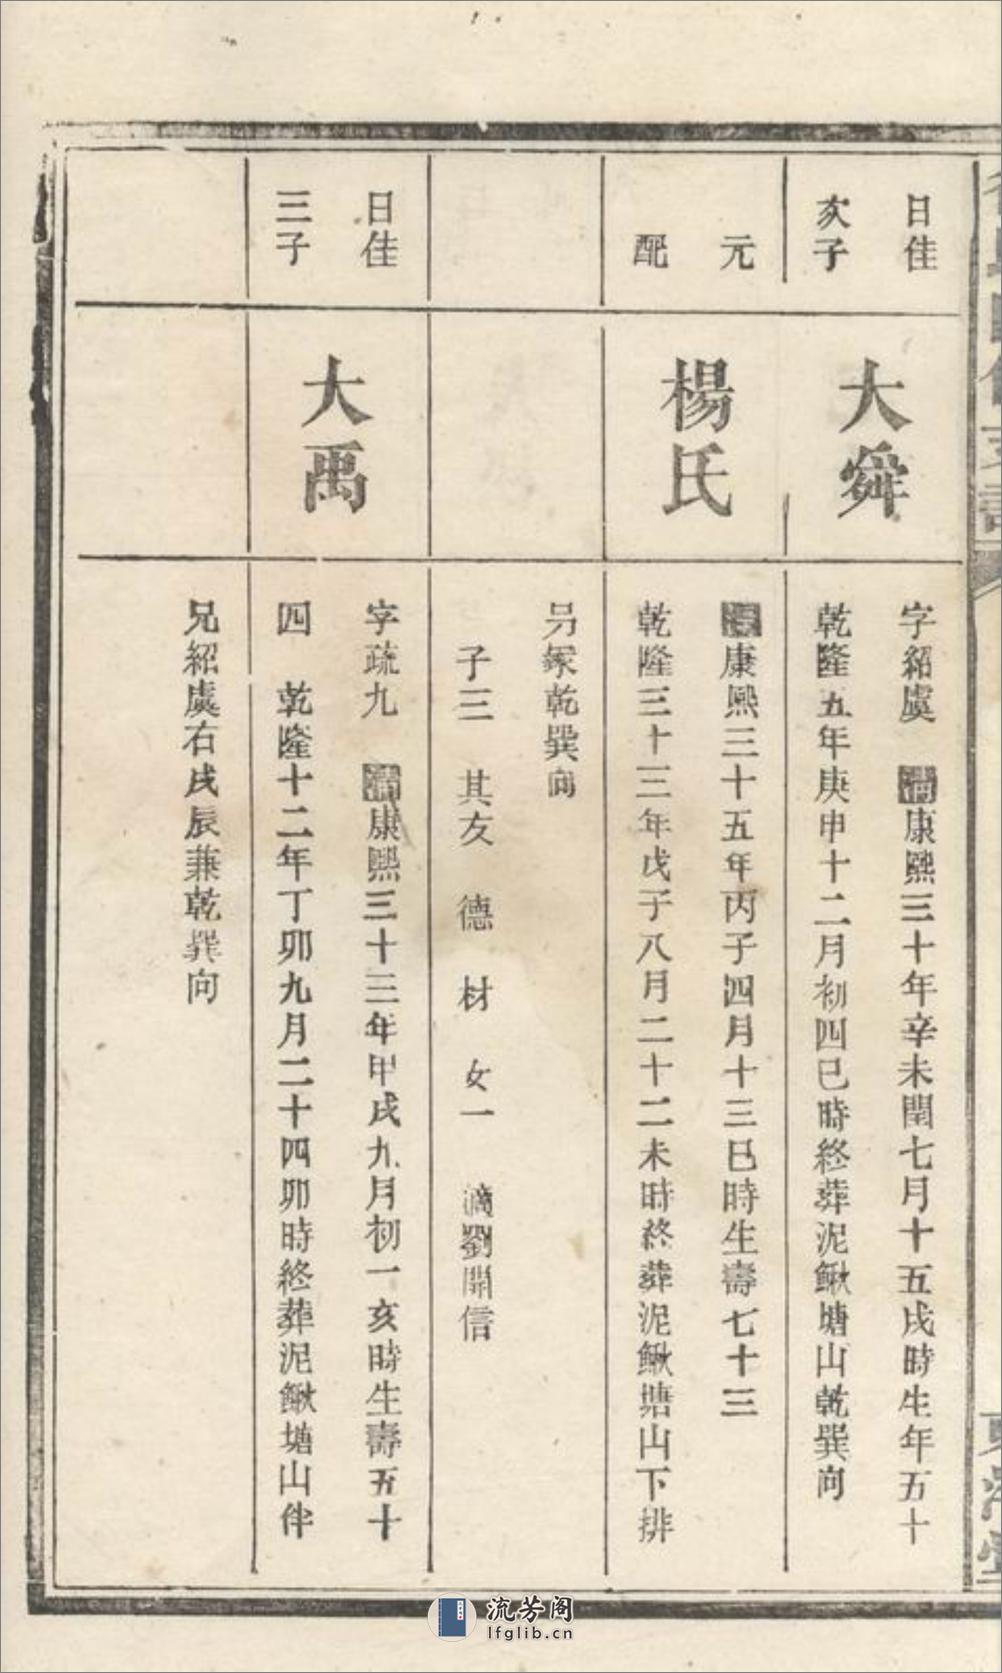 日佳
次子
大舜
字紹虞　清康熙三十年辛未閏七月十五戌時生年五十
乾隆五年庚申十二月初四巳時終葬泥鰍塘山乾巽向
元
配
楊氏
清康熙三十五年丙子四月十三巳時生壽七十三
乾隆三十三年戊子八月二十二未時終葬泥鰍塘山下排
另冢乾巽向
子三　其友　德　材　女一　適劉開信
日佳
三子
大禹
字疏九　清康熙三十三年甲戌九月初一亥時生壽五十
四　乾隆十二年丁卯九月二十四卯時終葬泥鰍塘山伴
兄紹虞右戌辰兼乾巽向
流芳阁
lfglib.cn